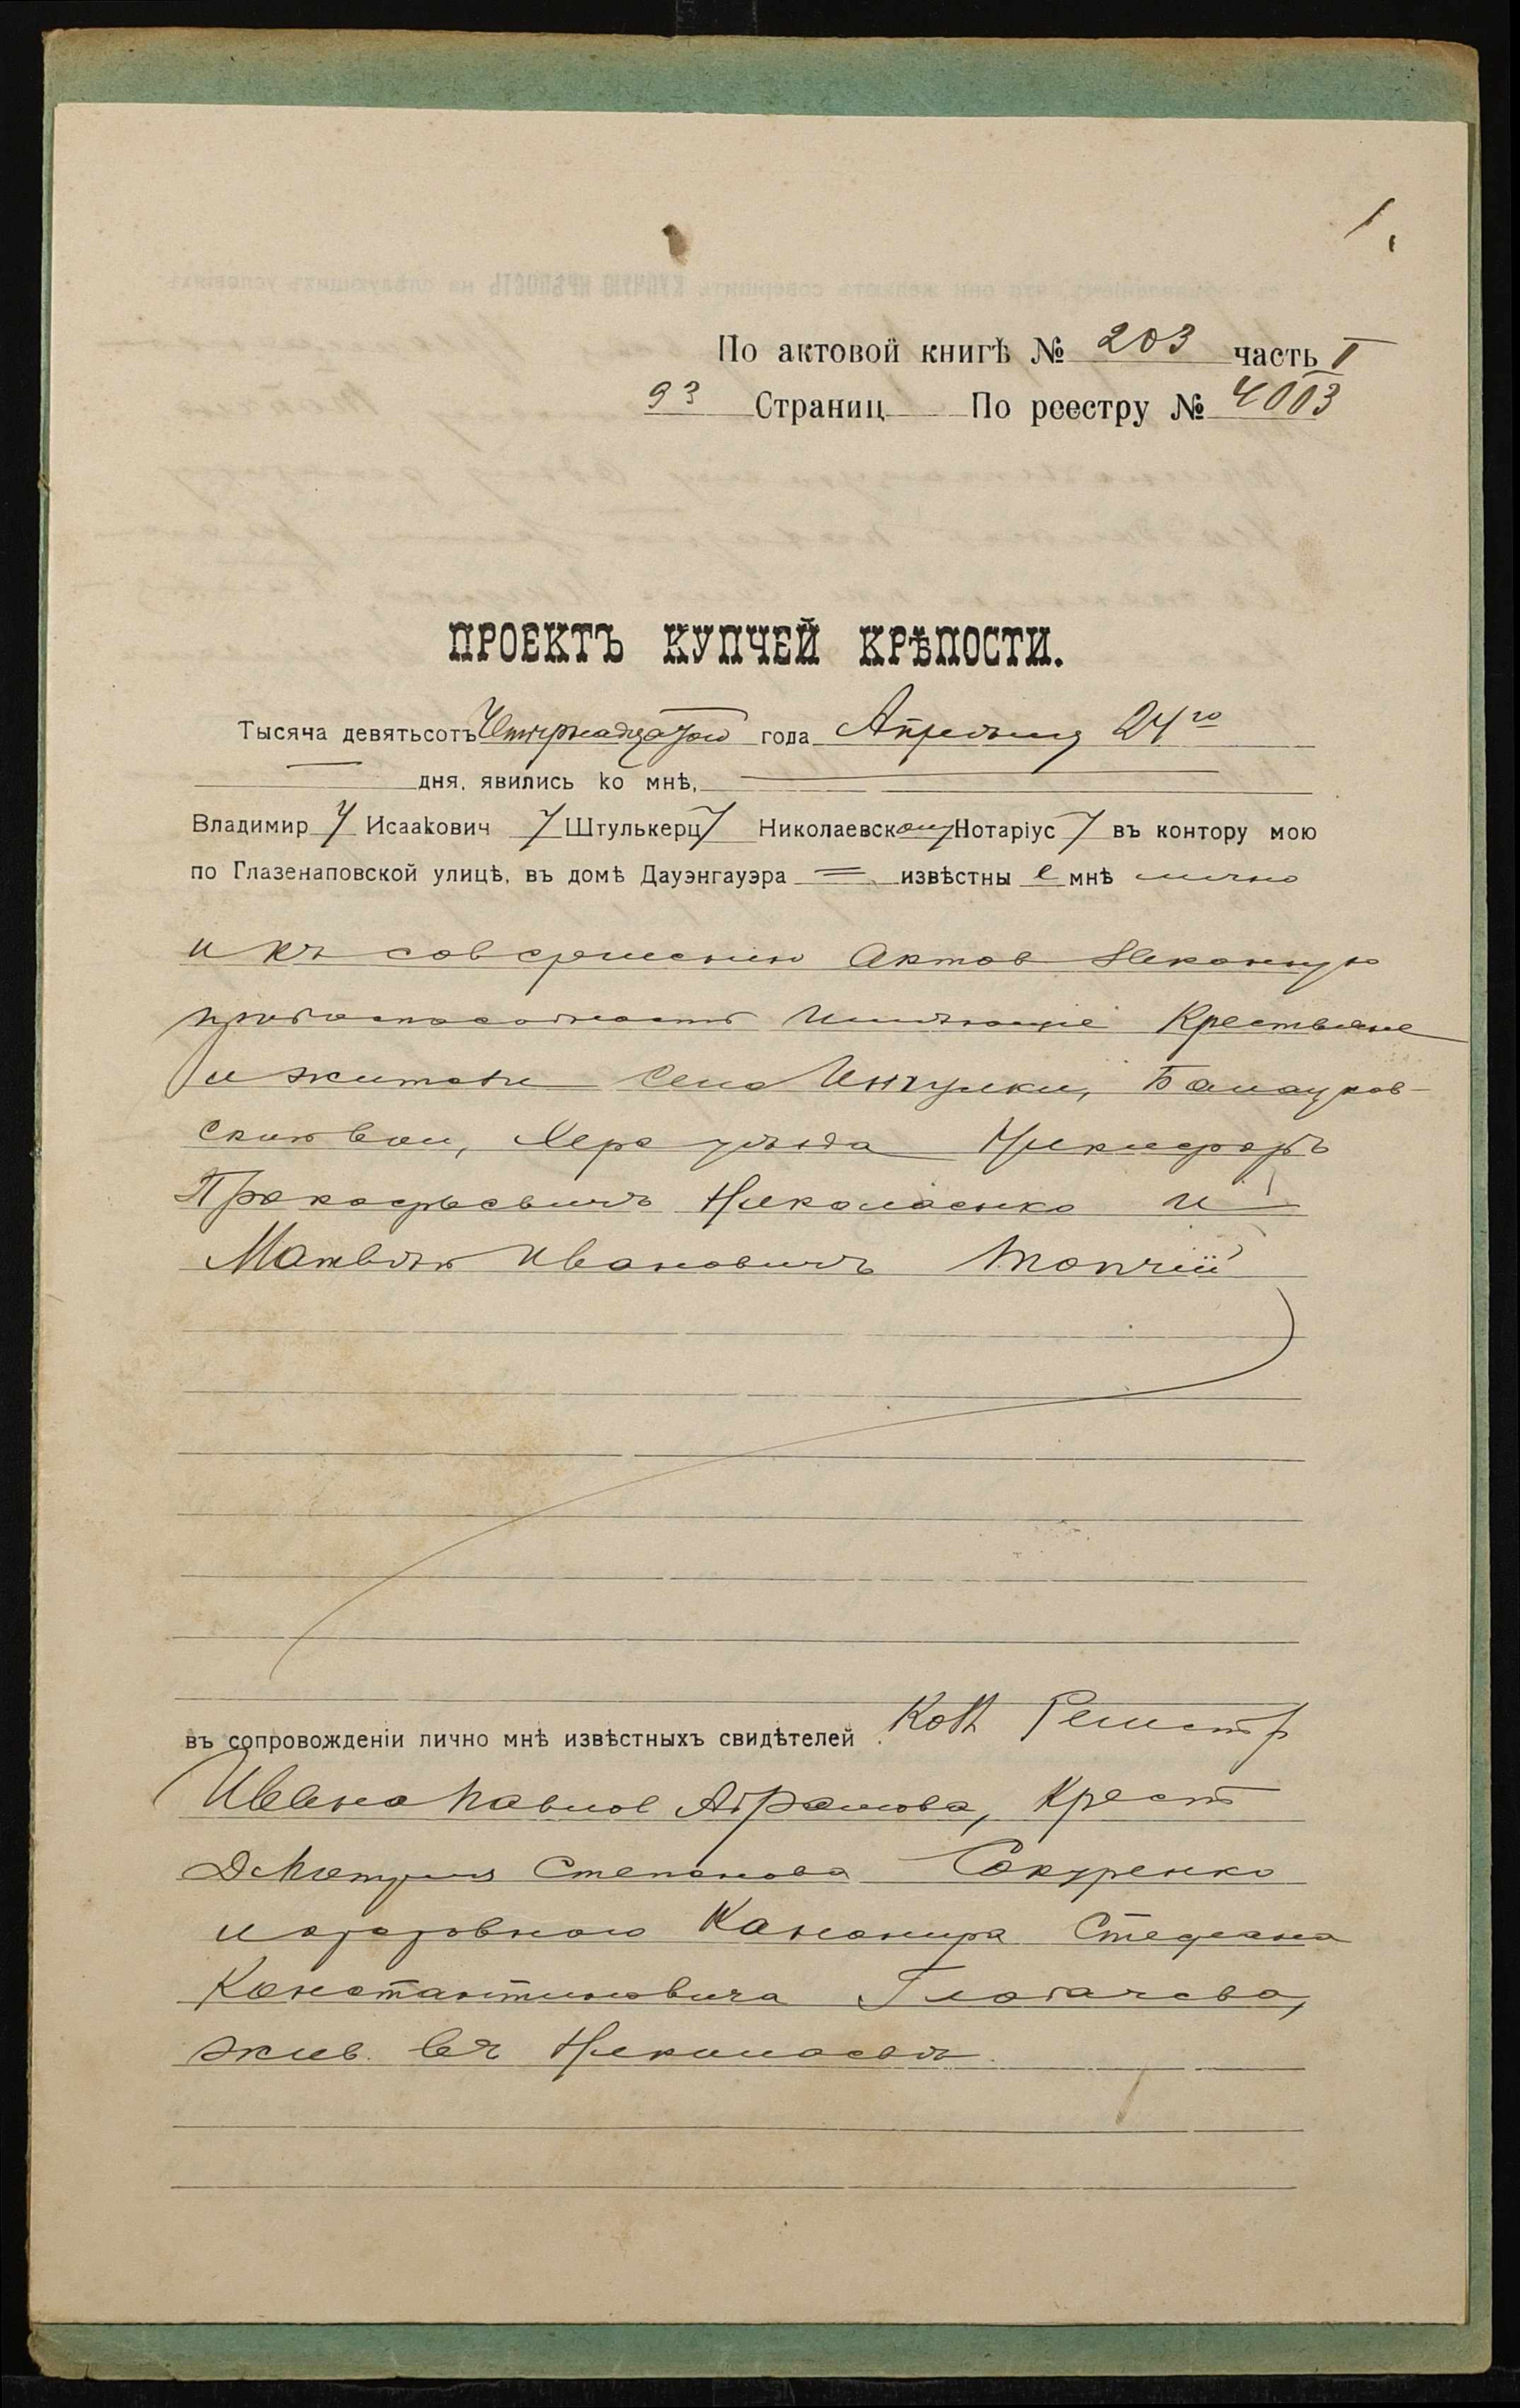 1.
По актовой книгѣ № 203 часть I
93 Страниц По реестру № 4003
ПРОЕКТЪ КУПЧЕЙ КРѢПОСТИ.
Тысяча девятьсотъ Четырнадцатаго года Апрѣля 24го
дня, явились ко мнѣ,
Владимир у Исаакович у Штулькерцу Николаевскому Нотаріус у въ контору мою
по Глазенаповской улицѣ, въ домѣ Дауэнгауэра извѣстны е мнѣ лично
и къ совершенію актов законную
правоспособность имѣющіе Крестьяне
и жители села Ингулки, Балацков-
ской вол, Херс уѣзда Никифоръ
Прокофьевичъ Николаенко и
Матвѣй Ивановичъ Топчій
въ сопровожденіи лично мнѣ извѣстныхъ свидѣтелей Кол Регистр
Ивана Павлов Абрамова, Крест
Дмитрія Степанова Сокуренко
и Канонира Стефана
Константиновича Глобачева,
жив. въ Николаевѣ.